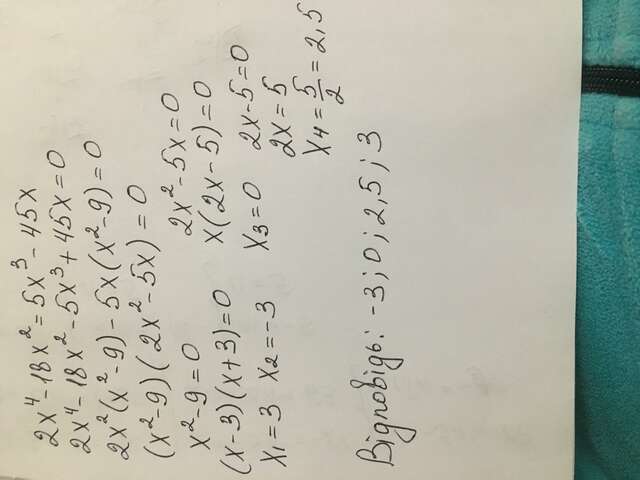 2x⁴-18x²=5x³-45x
2x⁴-18x²-5x³+45x=0
2x²(x²-9)-5x(x²-9)=0
(x²-9)(2x²-5x)=0
x²-9=0
(x-3)(x+3)=0
x₁=3 x₂=-3
2x²-5x=0
x(2x-5)=0
x₃=0
2x-5=0
2x=5
x₄=5/2=2,5
Відповідь: -3; 0; 2,5; 3